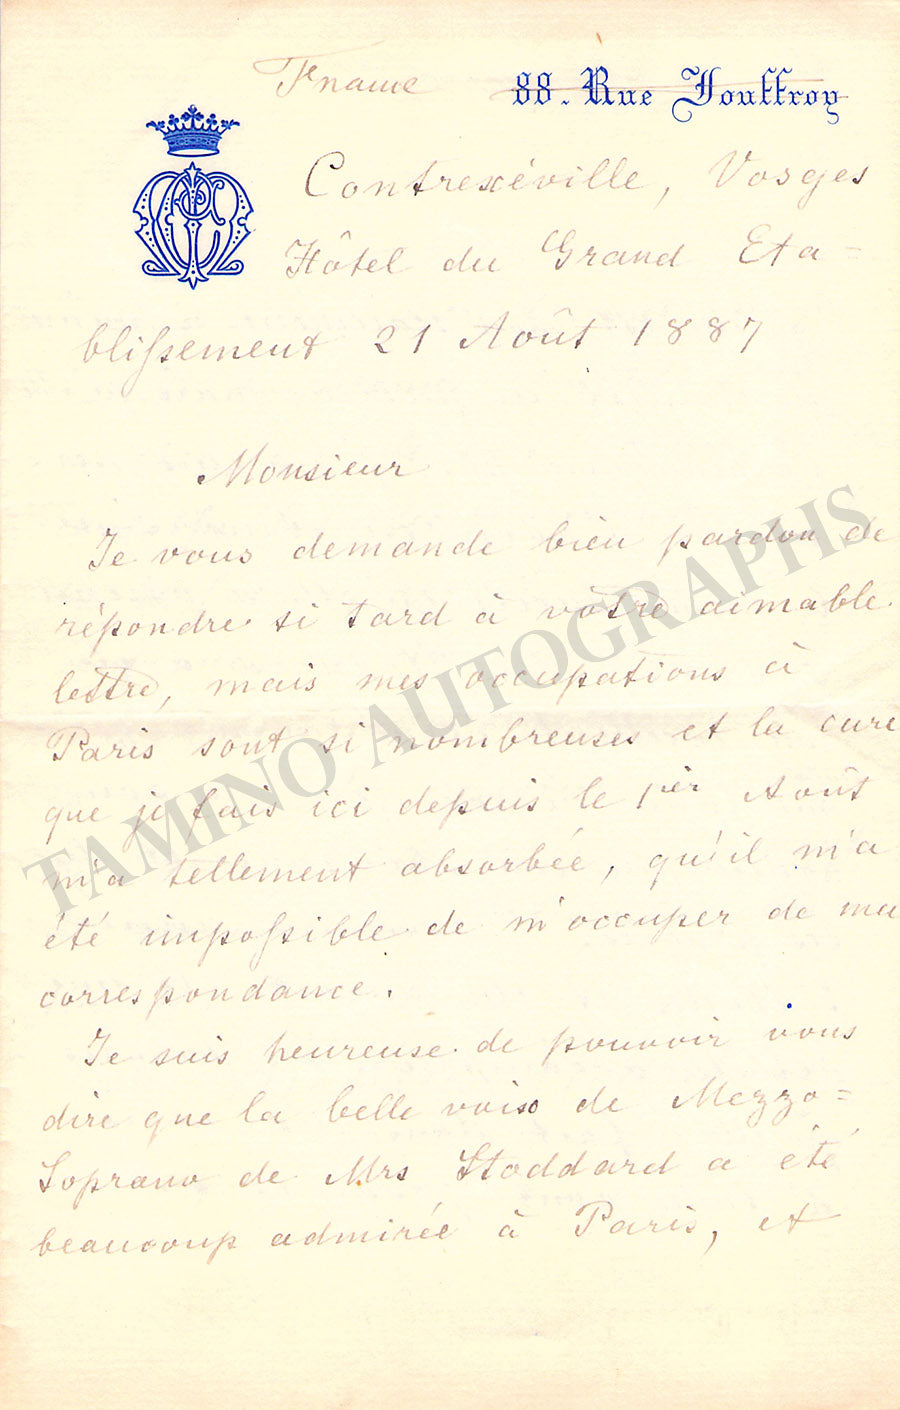 France
88. Rue Jouffroy
Contrexéville, Vosges
Hôtel du Grand Eta=
blissement 21 Août 1887
Monsieur
Je vous demande bien pardon de
répondre si tard à vôtre aimable
lettre, mais mes occupations à
Paris sont si nombreuses et la cure
que je fais ici depuis le 1ier Août
m'a tellement absorbée, qu'il m'a
été impossible de m'occuper de ma
correspondance.
Je suis heureuse de pouvoir vous
dire que la belle voix de Mezzo=
Soprano de Mrs Stoddard a été
beaucoup admirée à Paris, et
TAMINO AUTOGRAPHS